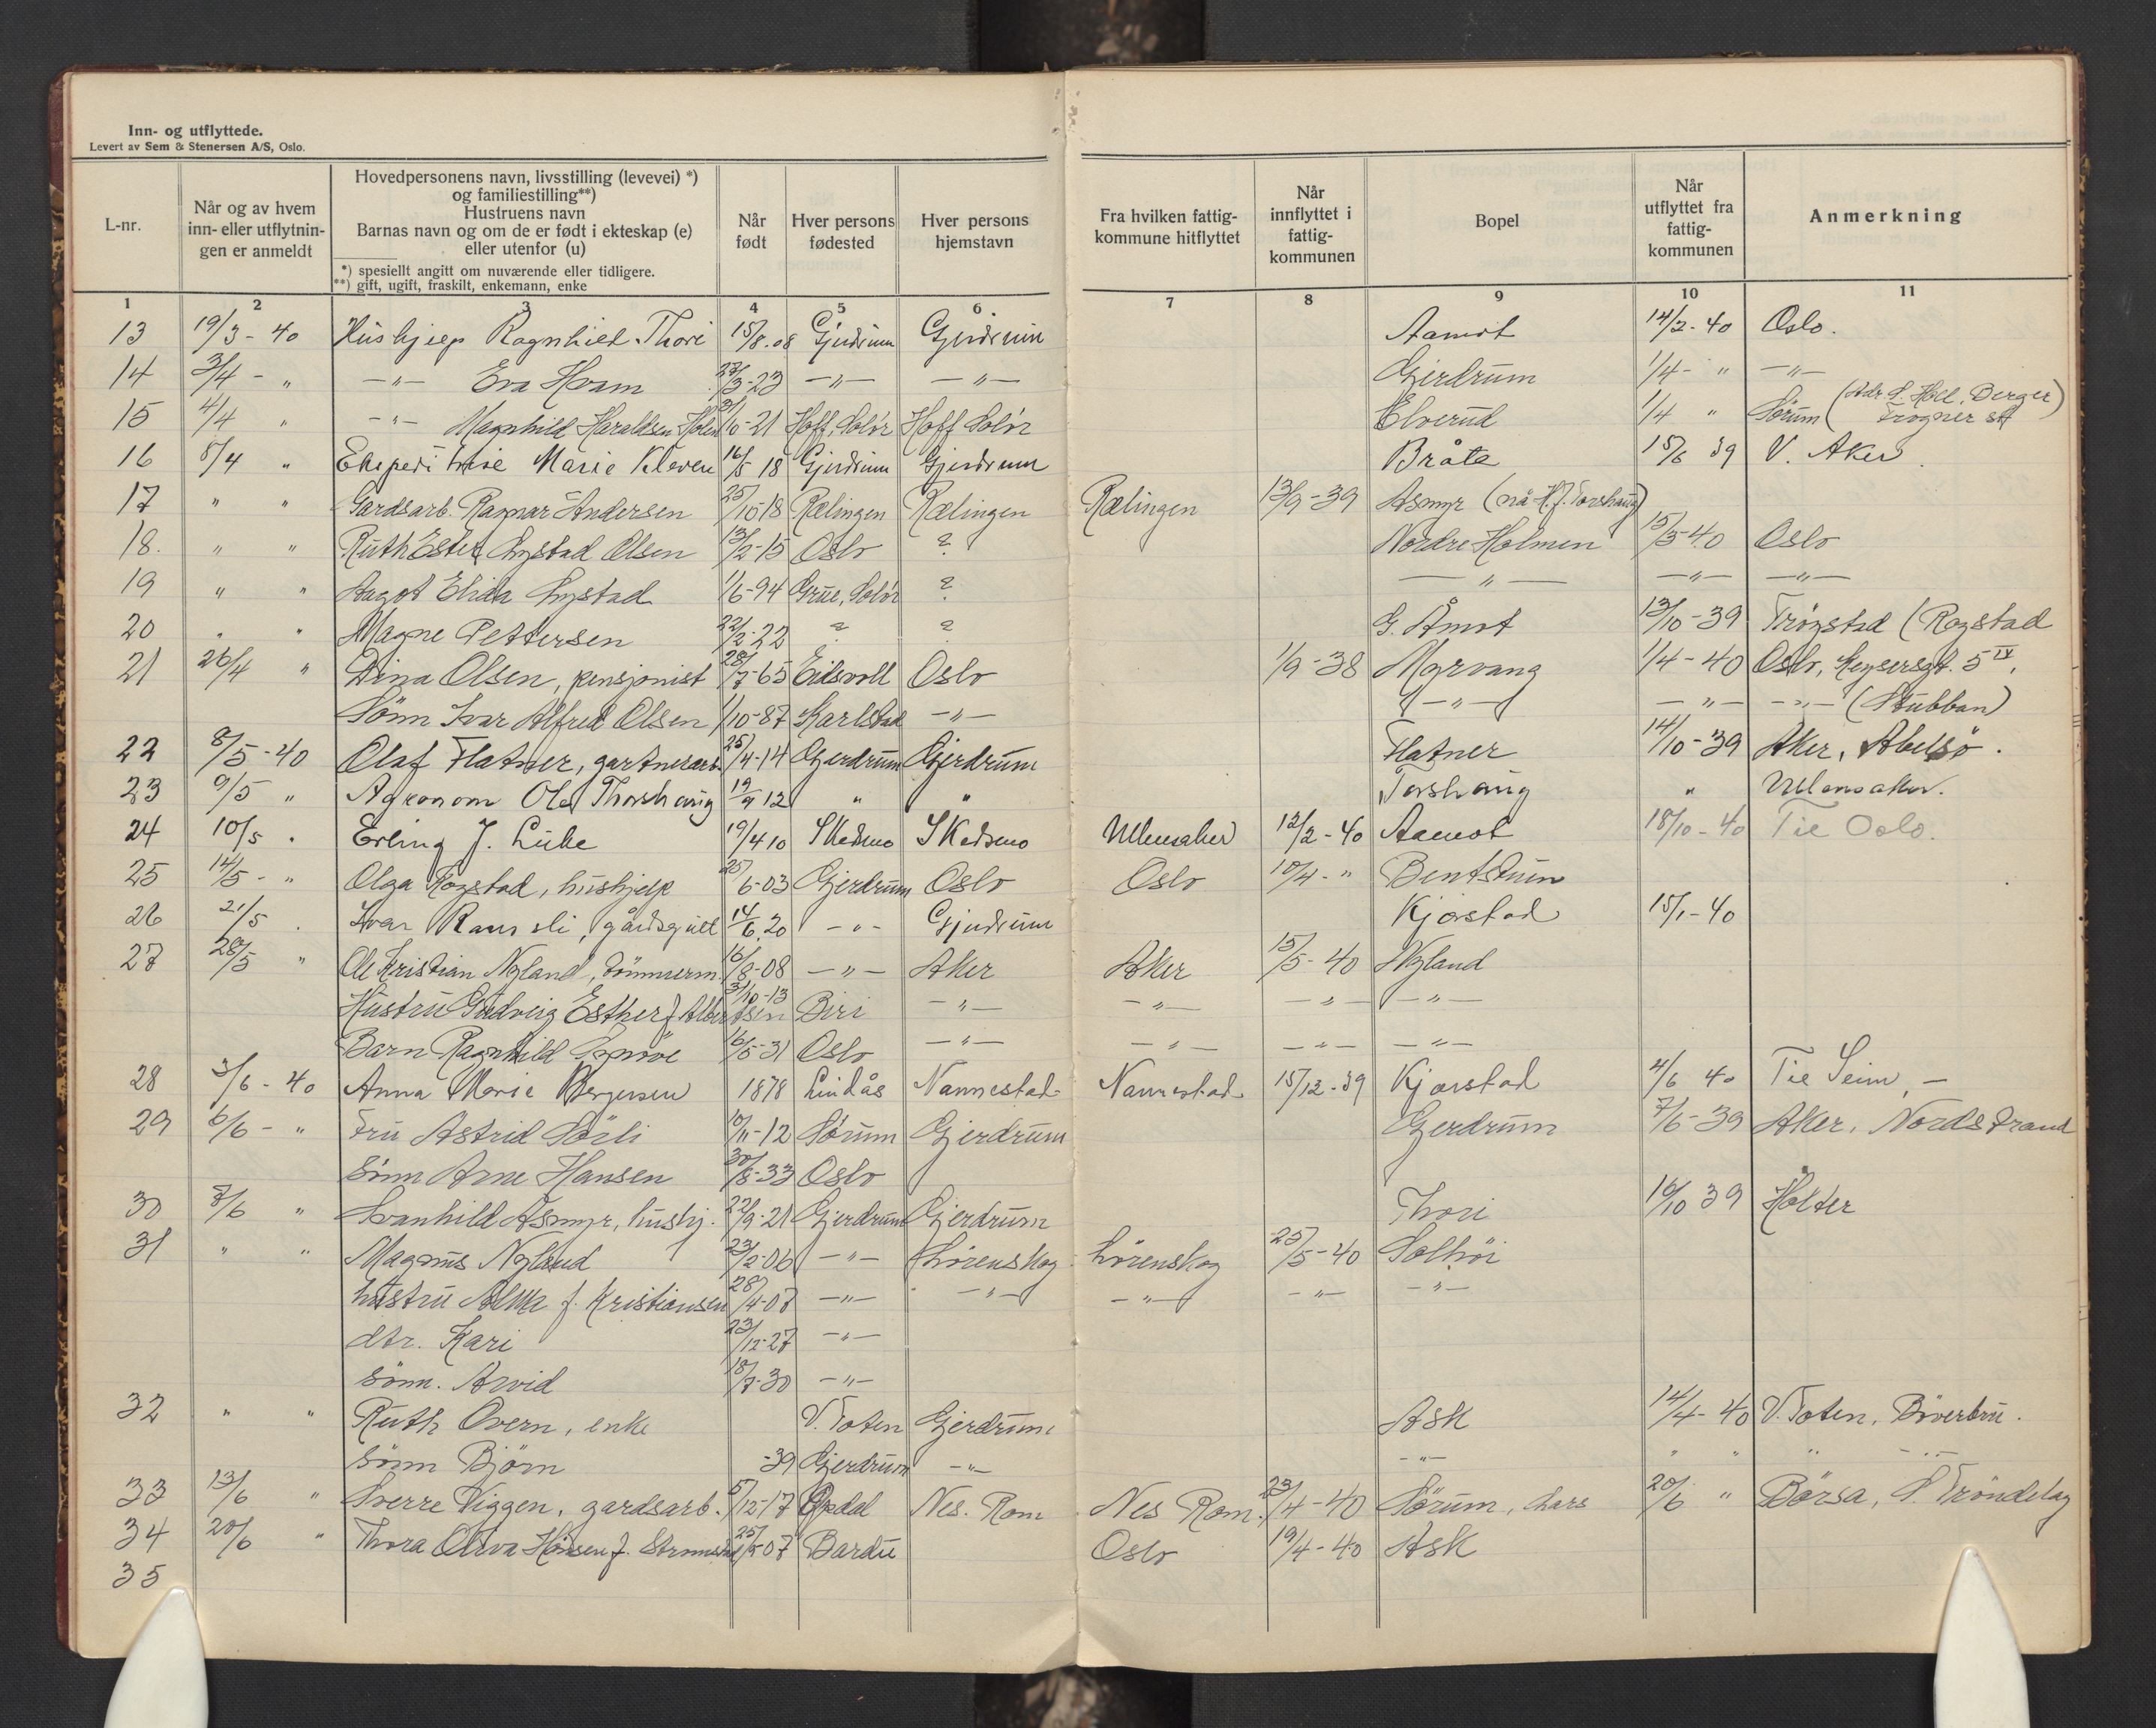 Inn- og utflyttede.
Levert av Sem & Stenersen A/S, Oslo.
L-nr. | Når og av hvem inn- eller utflytningen er anmeldt | Hovedpersonens navn, livsstilling (levevei) *) og familiestilling**) Hustruens navn Barnas navn og om de er født i ekteskap (e) eller utenfor (u) *) spesielt angitt om nuværende eller tidligere. **) gift, ugift, fraskilt, enkemann, enke | Når født | Hver persons fødested | Hver persons hjemstavn | Fra hvilken fattigkommune hitflyttet | Når innflyttet i fattigkommunen | Bopel | Når utflyttet fra fattigkommunen | Anmerkning
1 2 3 4 5 6 7 8 9 10 11
13 19/3-40 Hushjelp Ragnhild Thori 15/8.08 Gjerdrum Gjerdrum Aamot 14/2-40 Oslo.
14 3/4 - " -"- Eva Hvam 27/3-23 -"- -"- Gjerdrum 1/4- " -"-
15 4/4 " -"- Magnhild Haraldsen Holen 31/10-21 Hoff, Solör Hoff Solör Elverud 1/4 " Sörum (Adr S. Holl, Berger) Frogner st
16 5/4 " Ekspeditrise Marie Kleven 16/5 18 Gjerdrum Gjerdrum Bråte 15/6 39 V. Aker.
17 " " Gardsarb. Ragnar Andersen 25/10-18 Rælingen Rælingen Rælingen 13/9-39 Asmyr (nå H. J. Torshaug)
18. " " Ruth Ester Lystad Olsen 13/2-15 Oslo ? Nordre Holmen 15/3-40 Oslo
19 " " Aagot Elida Lystad 1/6-94 Grue, Solör ? -"- -"- -"-
20 " " Magne Pettersen 22/2-22 ? ? G. Åmot 13/10-39 Trögstad (Rogstad
21 26/4 " Dina Olsen, pensjonist 28/7-65 Eidsvoll Oslo 1/9-38 Myrvang 1/4-40 Oslo, Keysersgt. 5 IV,
Sönn Ivar Alfred Olsen 1/10-87 Karlstad -"- -"- -"- -"- (Stubban)
22 8/5-40 Olaf Flatner, gartnerarb. 25/4-14 Gjerdrum Gjerdrum Flatner 14/10-39 Aker, Abelsö.
23 9/5 " Agronom Ole Thorshaug 19/9 12 " " Torshaug " Ullensaker.
24 10/5 . Erling J. Lube 19/4 10 Skedsmo Skedsmo Ullensaker 12/2-40 Aamot 18/10-40 Til Oslo.
25 14/5 - " Olga Rogstad, hushjelp 25/6-03 Gjerdrum Oslo Oslo 10/4-" Bentstuen
26 21/5 . Ivar Ramsli, gårdsgutt 14/6.20 -"- Gjerdrum Kjorstad 15/1-40
27 28/5 " Ole Kristian Nyland, tömmerm. 16/8-08 -"- Aker Aker 15/5-40 Nyland
Hustru Gudveig Esther f. Albertsen 31/10-13 Biri -"- -"- -"- -"-
Barn Ragnhild 16/5-31 Oslo -"- -"- -"- -"-
28 3/6-40 Anna Marie Bergersen 1878 Lindås Nannestad Nannestad 15/12-39 Kjorstad 4/6 40 Til Seim, -
29 6/6 - " Fru Astrid Sörli 10/11-12 Sörum Gjerdrum Gjerdrum 7/6-39 Aker, Nordstrand
Sönn Arne Hansen 30/8-33 Oslo
30 7/6 " Svanhild Asmyr, hushj. 22/9-21 Gjerdrum Gjerdrum Thori 16/10 39 Holter
31 " " Magnus Nyland 23/2-06 -"- Lörenskog Lörenskog 25/5-40 Solhöi
hustru Alma f. Kristiansen 28/4-07 -"- -"- -"- -"- -"-
dtr. Kari 23/12-27 -"-
sönn. Arvid 18/7-30 -"-
32 " " Ruth Overn, enke V. Toten Gjerdrum Ask 14/4-40 V. Toten, Böverbru.
sönn Björn -39 Gjerdrum -"- -"- " " " -"-
33 13/6 " Sverre Viggen, gardsarb. 5/12-17 Opdal Nes. Rom Nes Rom. 23/4-40 Sörum, Lars 20/6 " Börsa, S. Tröndelag
34 20/6 " Thora Oliva Hansen f. Strømstad 25/5-07 Bardu Oslo 19/4-40 Ask
35